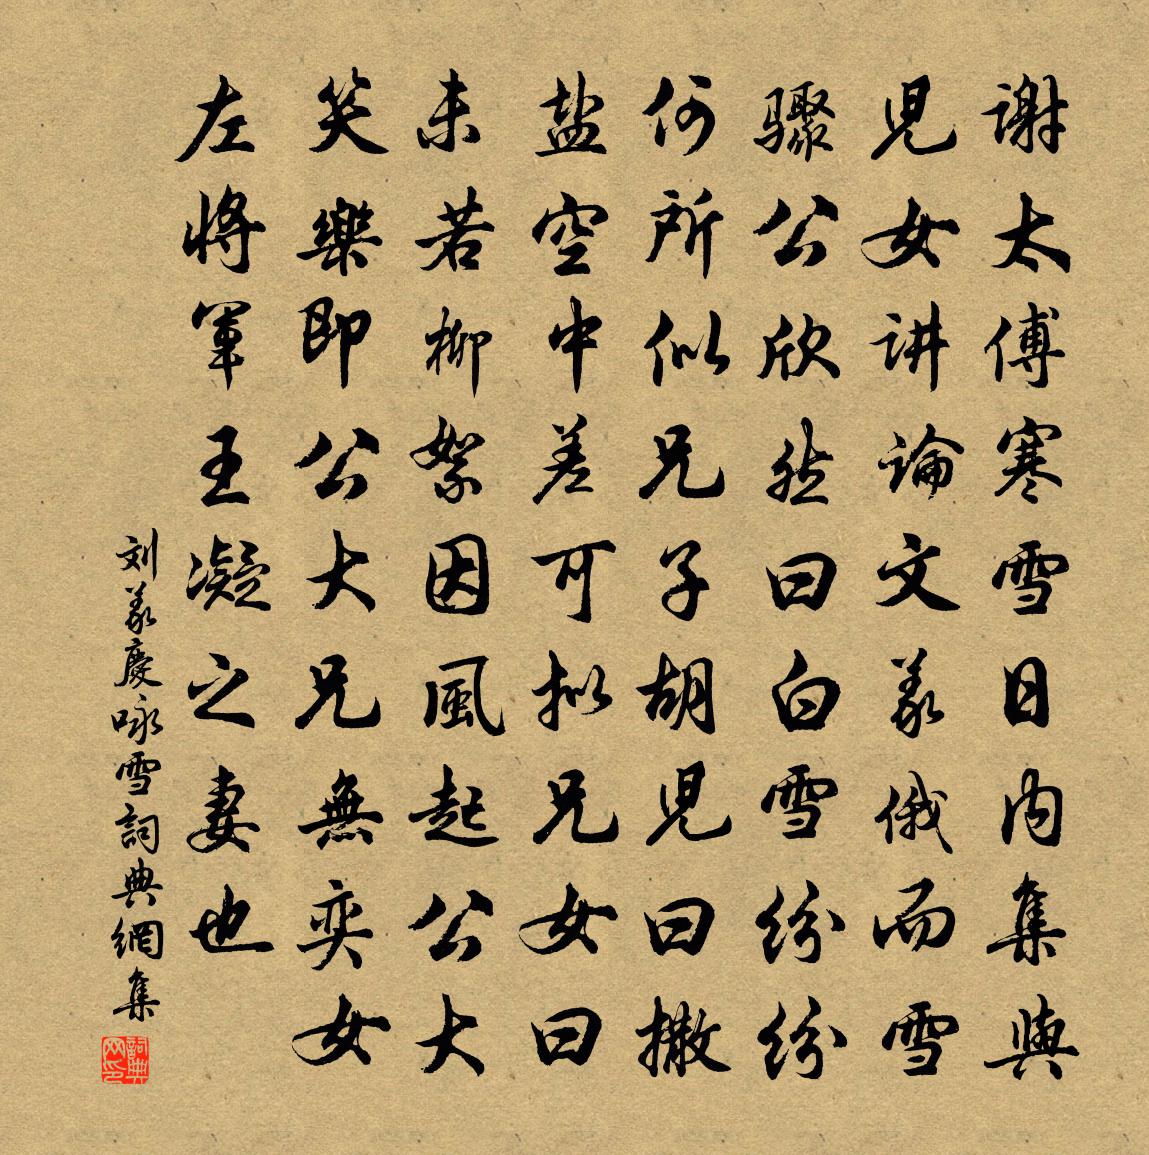 謝太傅寒雪日内集與
児女讲論文義俄而雪
驟公欣然曰白雪紛紛
何所似兄子胡児曰撒
盐空中差可拟兄女曰
未若柳絮因風起公大
笑樂即公大兄無奕女
左将軍王凝之妻也
刘義慶咏雪詞典網集
詞典
网印